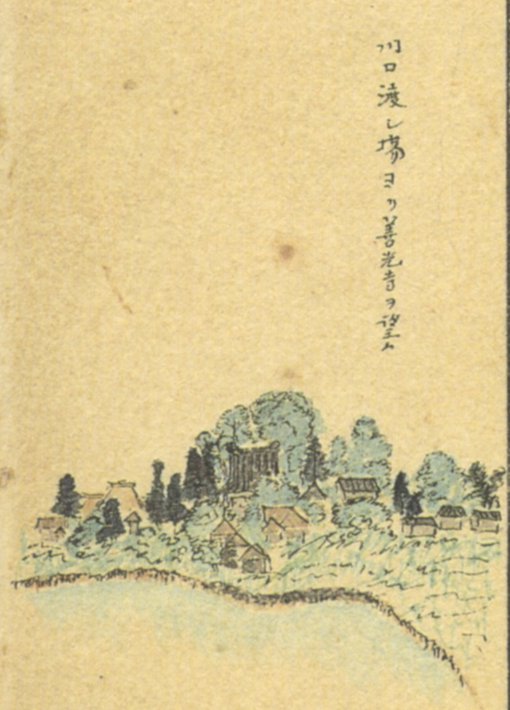 川口渡し場ヨリ善光寺ヲ望ム